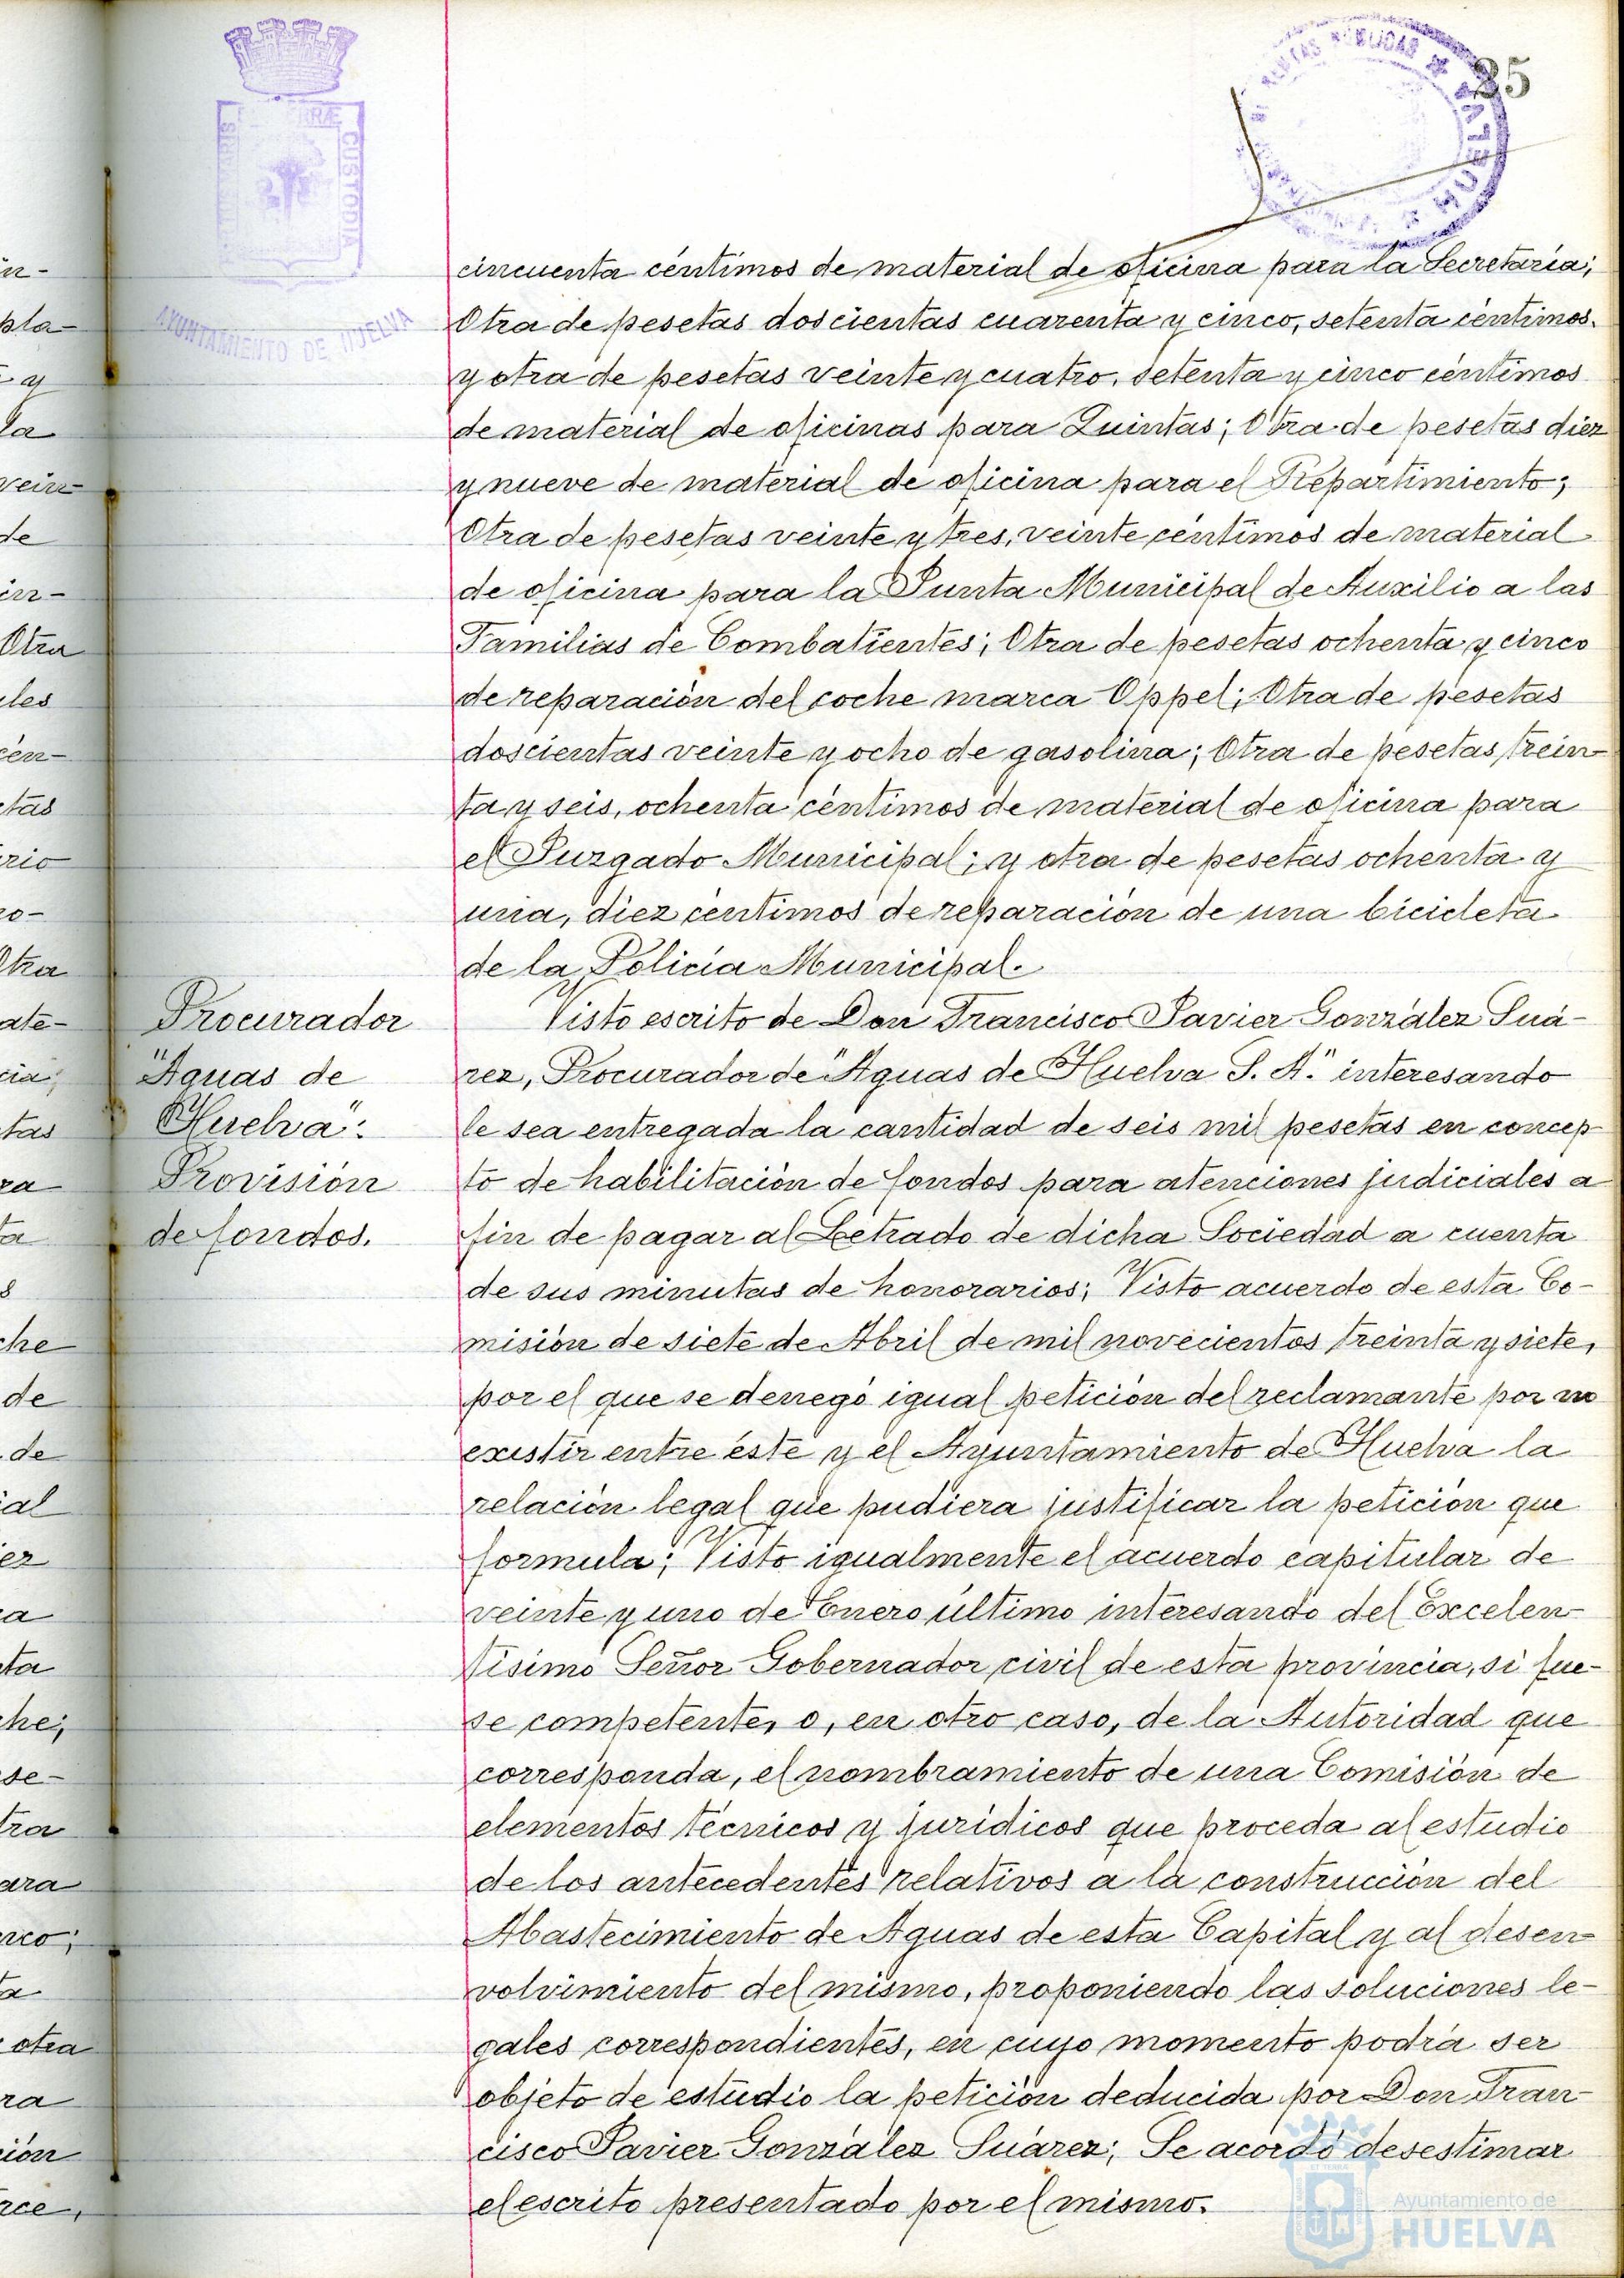 35
AYUNTAMIENTO DE HUELVA
cincuenta céntimos de material de oficina para la Secretaría;
Otra de pesetas doscientas cuarenta y cinco, setenta céntimos.
y otra de pesetas veinte y cuatro, setenta y cinco céntimos
de material de oficinas para Quintas; Otra de pesetas diez
y nueve de material de oficina para el Repartimiento;
Otra de pesetas veinte y tres, veinte céntimos de material
de oficina para la Junta Municipal de Auxilio a las
Familias de Combatientes; Otra de pesetas ochenta y cinco
de reparación del coche marca Oppel; Otra de pesetas
doscientas veinte y ocho de gasolina; Otra de pesetas trein-
ta y seis, ochenta céntimos de material de oficina para
el Juzgado Municipal; y otra de pesetas ochenta y
una, diez céntimos de reparación de una bicicleta
de la Policía Municipal.
Procurador
"Aguas de
Huelva":
Provisión
de fondos.
Visto escrito de Don Francisco Javier González Suá-
rez, Procurador de "Aguas de Huelva S. A." interesando
le sea entregada la cantidad de seis mil pesetas en concep-
to de habilitación de fondos para atenciones judiciales a
fin de pagar al Letrado de dicha Sociedad a cuenta
de sus minutas de honorarios; Visto acuerdo de esta Co-
misión de siete de Abril de mil novecientos treinta y siete,
por el que se denegó igual petición del reclamante por no
existir entre éste y el Ayuntamiento de Huelva la
relación legal que pudiera justificar la petición que
formula; Visto igualmente el acuerdo capitular de
veinte y uno de Enero último interesando del Excelen-
tísimo Señor Gobernador civil de esta provincia, si fue-
se competente, o, en otro caso, de la Autoridad que
corresponda, el nombramiento de una Comisión de
elementos técnicos y jurídicos que proceda al estudio
de los antecedentes relativos a la construcción del
Abastecimiento de Aguas de esta Capital y al desen-
volvimiento del mismo, proponiendo las soluciones le-
gales correspondientes, en cuyo momento podrá ser
objeto de estudio la petición deducida por Don Fran-
cisco Javier González Suárez; Se acordó desestimar
el escrito presentado por el mismo.
Ayuntamiento de
HUELVA